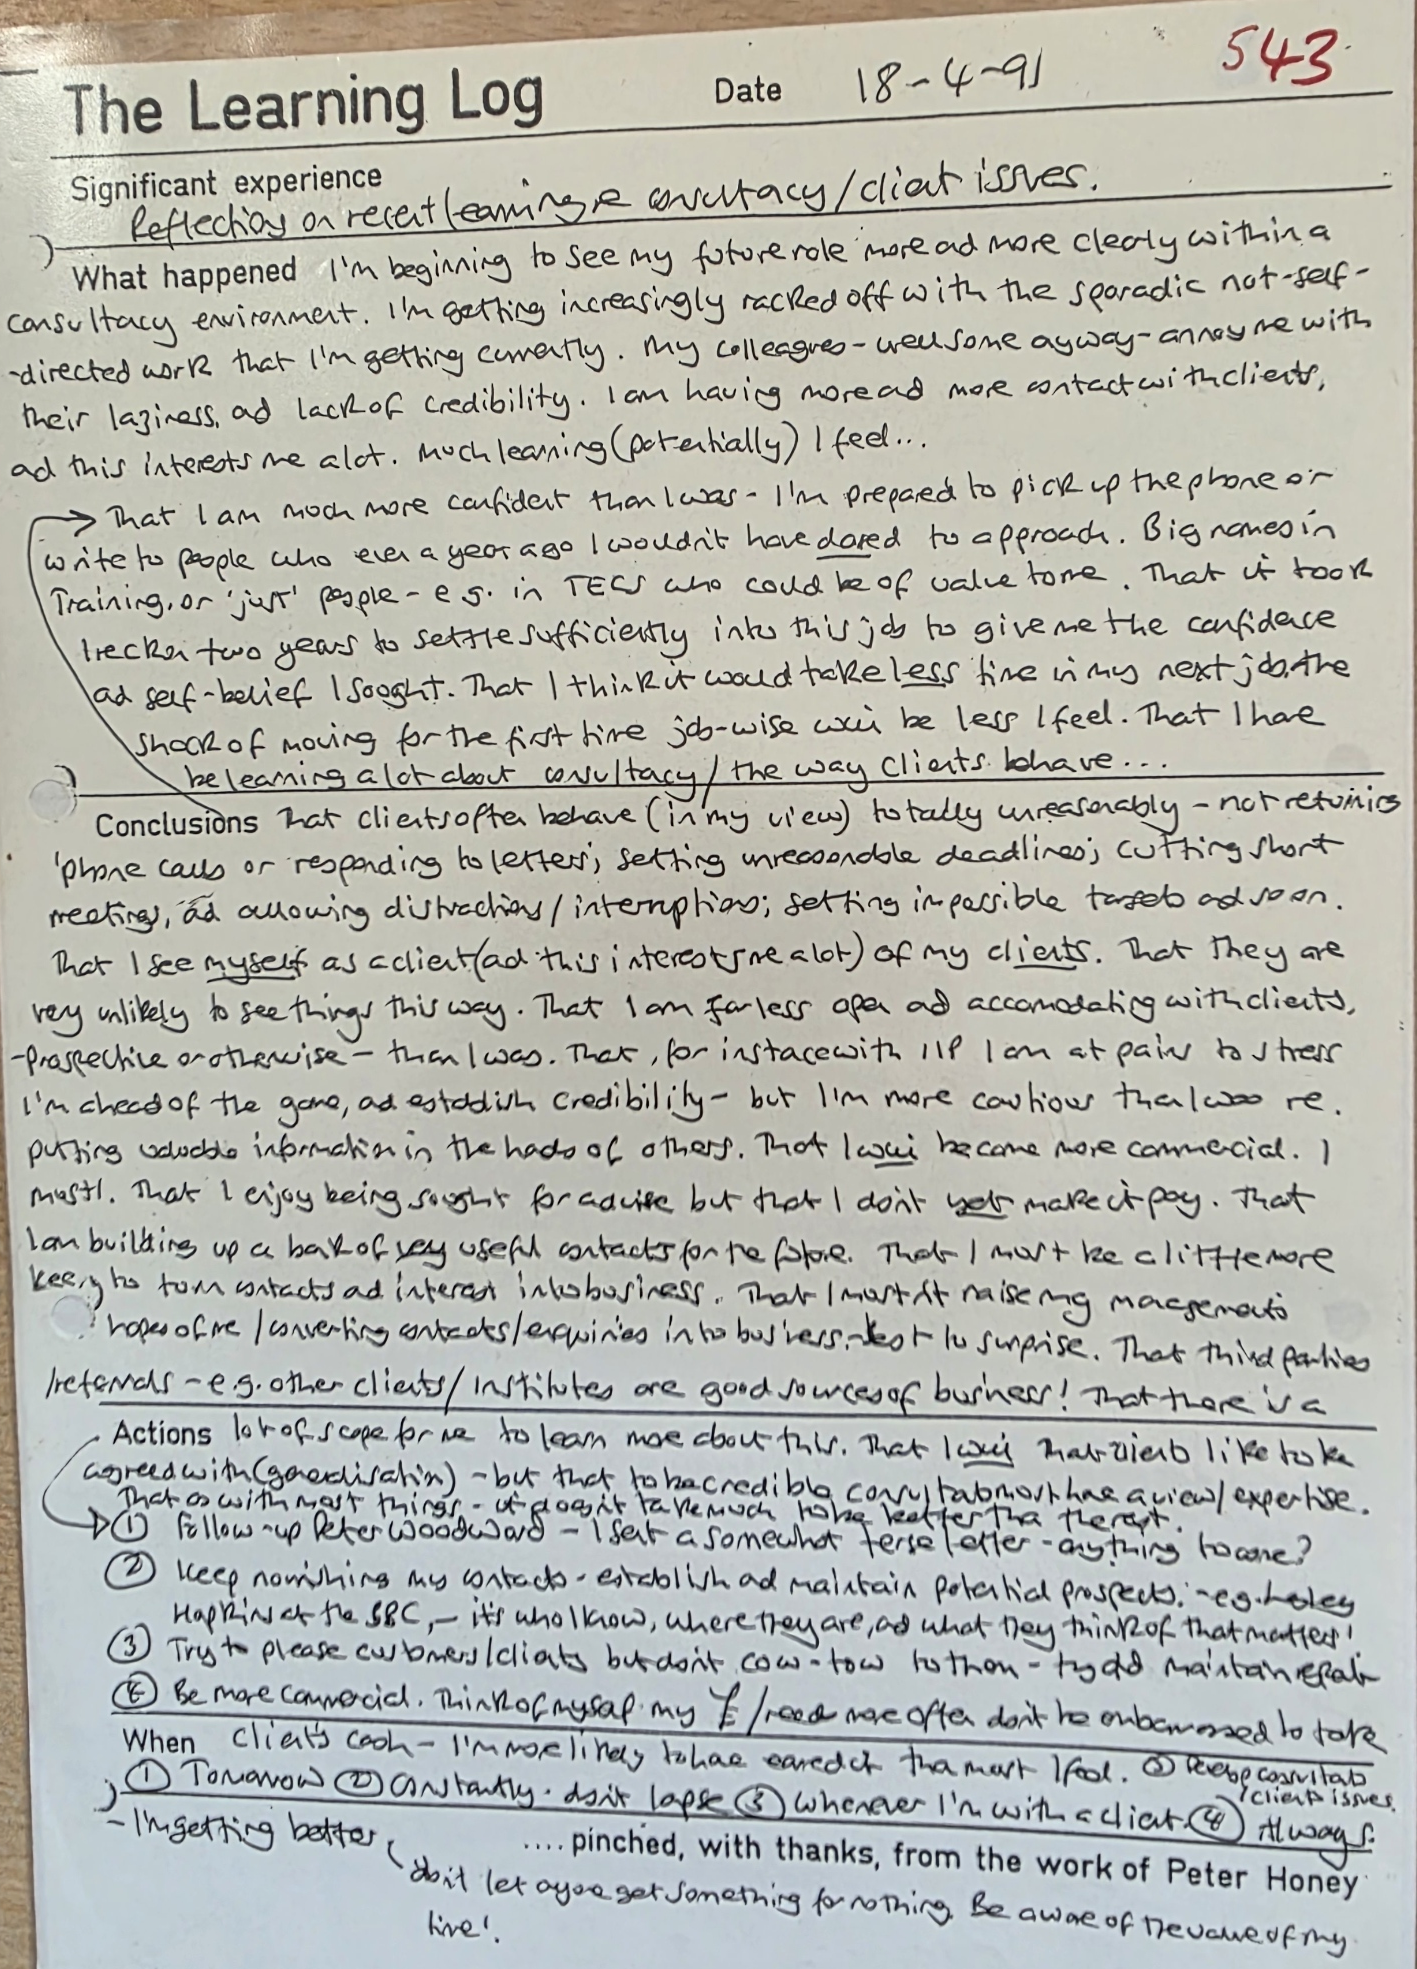 543
The Learning Log Date 18-4-91
Significant experience
Reflections on recent learning re consultacy/client issues.
What happened I'm beginning to see my future role more ad more clearly within a
consultacy environment. I'm getting increasingly racked off with the sporadic not-self-
-directed work that I'm getting currently. My colleagues - well some ayway - annoy me with
their laziness, ad lack of credibility. I am having more ad more contact with clients,
ad this interests me a lot. Much learning (potentially) I feel...
That I am much more confident than I was - I'm prepared to pick up the phone or
write to people who even a year ago I wouldn't have dared to approach. Big names in
Training, or 'just' people - e.g. in TECs who could be of value to me. That it took
I reckon two years to settle sufficiently into this job to give me the confidence
ad self-belief I sought. That I think it would take less time in my next job. the
shock of moving for the first time job-wise will be less I feel. That I have
be learning a lot about consultacy / the way clients behave...
Conclusions That clients often behave (in my view) totally unreasonably - not returning
'phone calls or responding to letters; setting unreasonable deadlines; cutting short
meetings, ad allowing distractions / interruptions; setting impossible targets ad so on.
That I see myself as a client (ad this interests me a lot) of my clients. That they are
very unlikely to see things this way. That I am far less open ad accomodating with clients,
-prospective or otherwise - than I was. That, for instace with IIP I am at pains to stress
I'm ahead of the game, ad establish credibility - but I'm more cautious than I was re.
putting valuable information in the hads of others. That I will become more commercial. I
must!. That I enjoy being sought for advice but that I don't yet make it pay. That
I am building up a bak of very useful contacts for the future. That I must be a little more
to turn contacts ad interest into business. That I mustn't raise my management's
hopes of me / converting contacts/enquiries into business - best to surprise. That third parties
/referrals - e.g. other clients/institutes are good sources of business! That there is a
Actions lot of scope for me to learn more about this. That I will That clients like to be
agreed with (generalisation) - but that to be credible consultats must have a view/expertise.
That as with most things - it doesn't take much to be better tha the rest.
① Follow-up Peter Woodward - I sent a somewhat terse letter - anything to come?
② Keep nourishing my contacts - establish ad maintain potential prospects. - e.g. Lesley
Hopkins at the BBC, - it's who I know, where they are, ad what they think of that matters!
③ Try to please customers/clients but don't cow-tow to them - try ad maintain
④ Be more commercial. Think of myself my £/ more often don't be embarrassed to take
When clients cash - I'm more likely to have earned it tha most I feel. ⑤ consultats
/client issues.
① Tomorrow ② Constantly. don't lapse ③ Whenever I'm with a client. ④ Always.
- I'm getting better
.... pinched, with thanks, from the work of Peter Honey
don't let ayone get something for nothing. Be aware of the value of my
time!